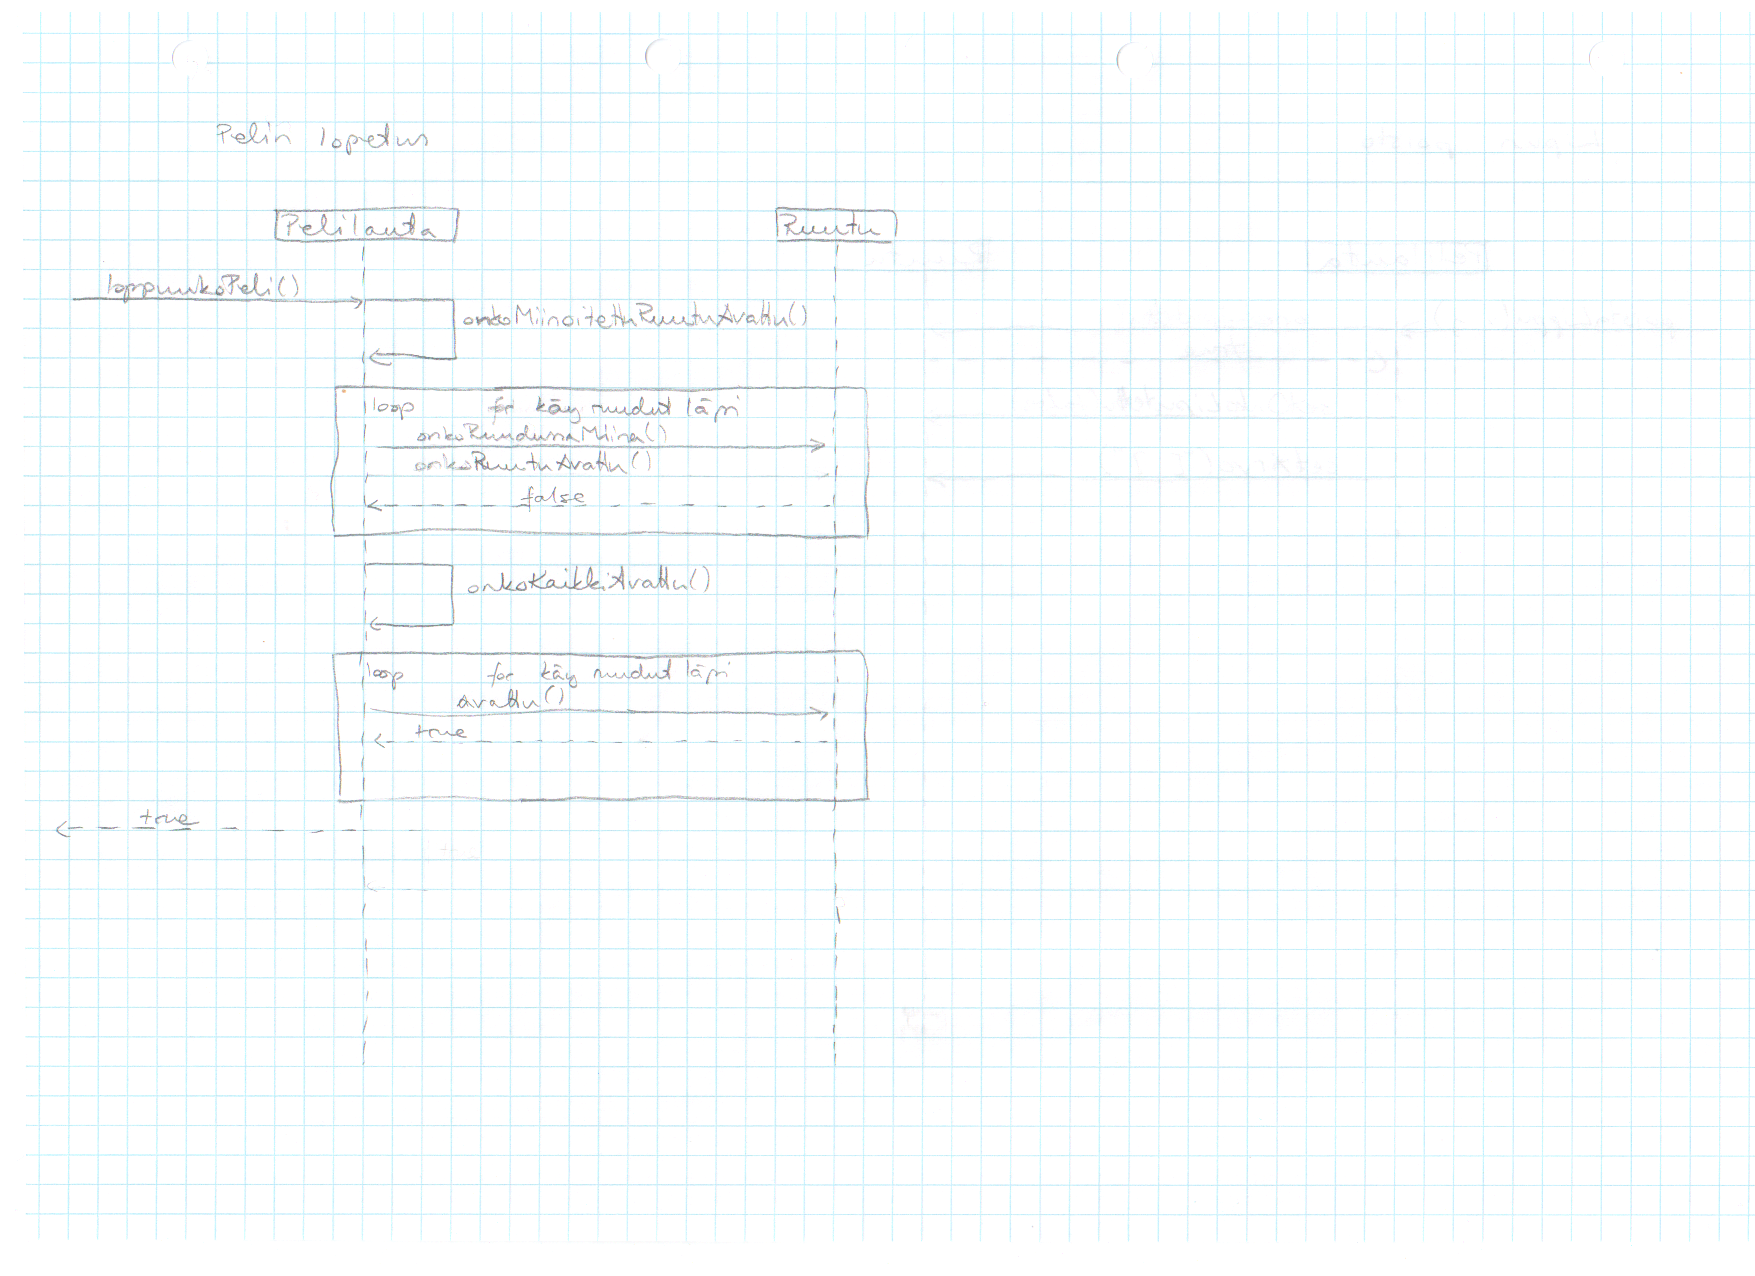 Pelin lopetus
Pelilauta
Ruutu
loppuukoPeli()
onkoMiinoitettuRuutuAvattu()
loop for käy ruudut läpi
onkoRuudussaMiina()
onkoRuutuAvattu()
false
onkoKaikkiAvattu()
loop for käy ruudut läpi
Avattu()
true
true